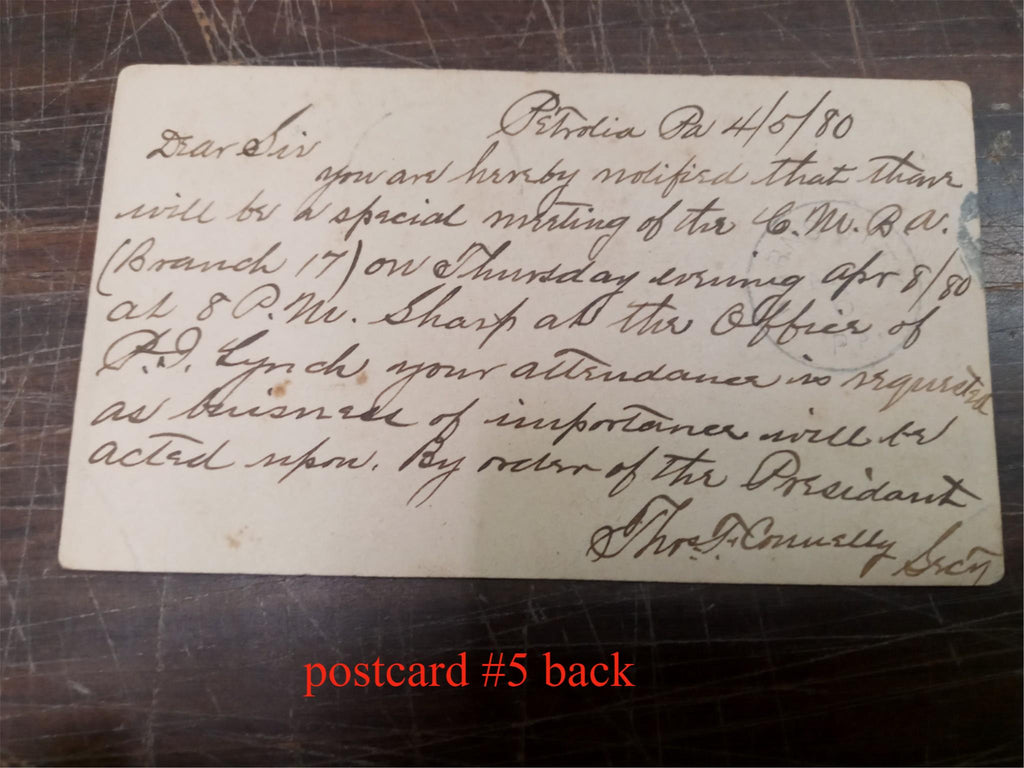 Petrolia Pa 4/5/80
Dear Sir
you are hereby notified that thare
will be a special meeting of the C. M. B A.
(Branch 17) on Thursday evening apr 8/80
at 8 P. M. Sharp at the Office of
P. J. Lynch your attendance is requested
as buisness of importance will be
acted upon. By order of the Presidant
Thos. F. Connelly Secy
postcard #5 back